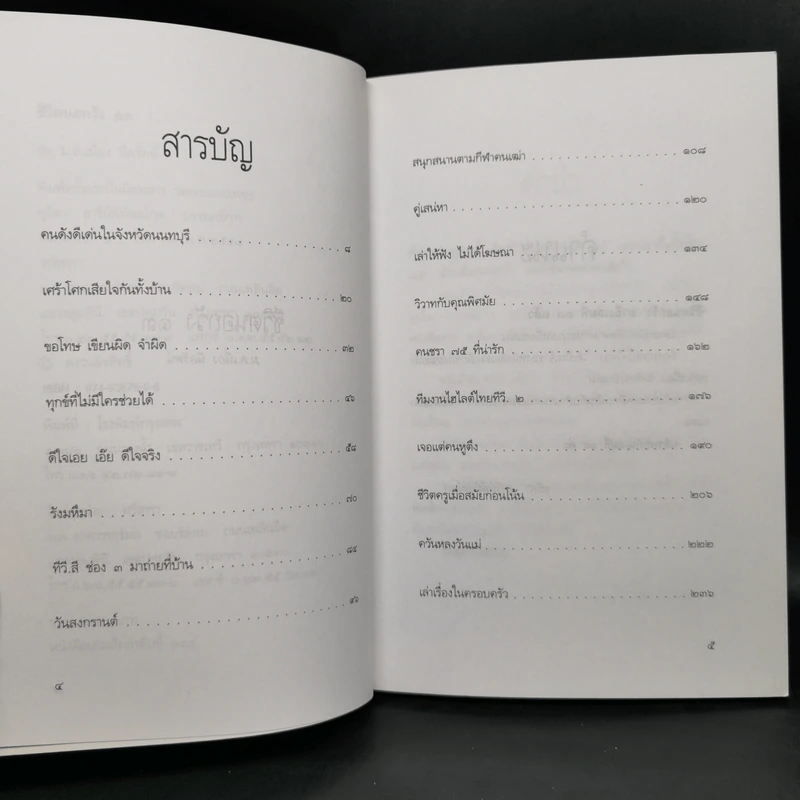 สารบัญ
คนดังดีเด่นในจังหวัดนนทบุรี . . . . . . . . . . . . . . . . . ๘
เศร้าโศกเสียใจกันทั้งบ้าน . . . . . . . . . . . . . . . . . . . ๒๐
ขอโทษ เขียนผิด จำผิด . . . . . . . . . . . . . . . . . . . . ๓๒
ทุกข์ที่ไม่มีใครช่วยได้ . . . . . . . . . . . . . . . . . . . . . ๔๖
ดีใจเอย เอ๊ย ดีใจจริง . . . . . . . . . . . . . . . . . . . . . ๕๘
รังมหึมา . . . . . . . . . . . . . . . . . . . . . . . . . . . . . . ๗๐
ทีวี.สี ช่อง ๓ มาถ่ายที่บ้าน . . . . . . . . . . . . . . . . . ๘๔
วันสงกรานต์ . . . . . . . . . . . . . . . . . . . . . . . . . . . ๙๖
๔
สนุกสนานตามกีฬาคนเฒ่า . . . . . . . . . . . . . . . . . ๑๐๘
คู่เสน่หา . . . . . . . . . . . . . . . . . . . . . . . . . . . . . . ๑๒๐
เล่าให้ฟัง ไม่ได้โฆษณา . . . . . . . . . . . . . . . . . . . ๑๓๔
วิวาทกับคุณพิศมัย . . . . . . . . . . . . . . . . . . . . . . ๑๔๘
คนชรา ๗๕ ที่น่ารัก . . . . . . . . . . . . . . . . . . . . . ๑๖๒
ทีมงานไฮไลต์ไทยทีวี. ๒ . . . . . . . . . . . . . . . . . . ๑๗๖
เจอแต่คนหูตึง . . . . . . . . . . . . . . . . . . . . . . . . . ๑๙๐
ชีวิตครูเมื่อสมัยก่อนโน้น . . . . . . . . . . . . . . . . . . ๒๐๖
ควันหลงวันแม่ . . . . . . . . . . . . . . . . . . . . . . . . . ๒๒๒
เล่าเรื่องในครอบครัว . . . . . . . . . . . . . . . . . . . . . ๒๓๖
๕